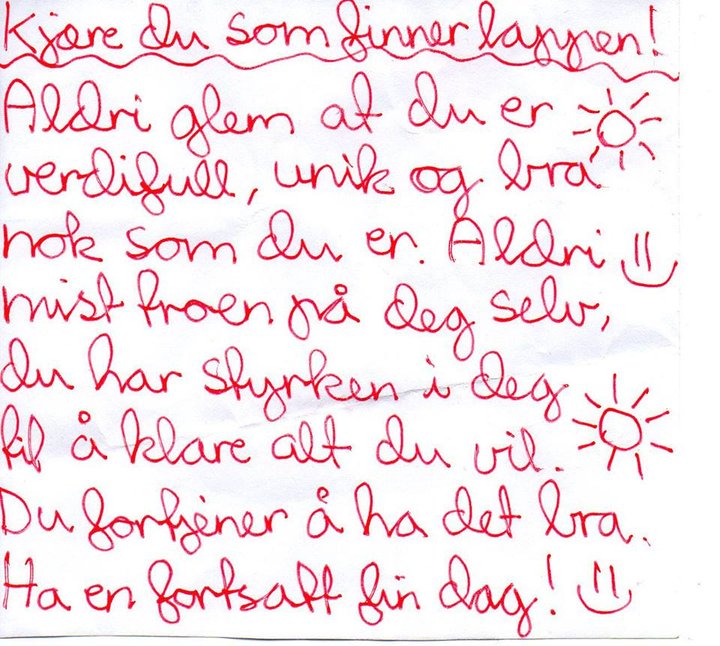 Kjære du som finner lappen!
Aldri glem at du er
verdifull, unik og bra
nok som du er. Aldri
mist troen på deg selv,
du har styrken i deg
til å klare alt du vil.
Du fortjener å ha det bra.
Ha en fortsatt fin dag!